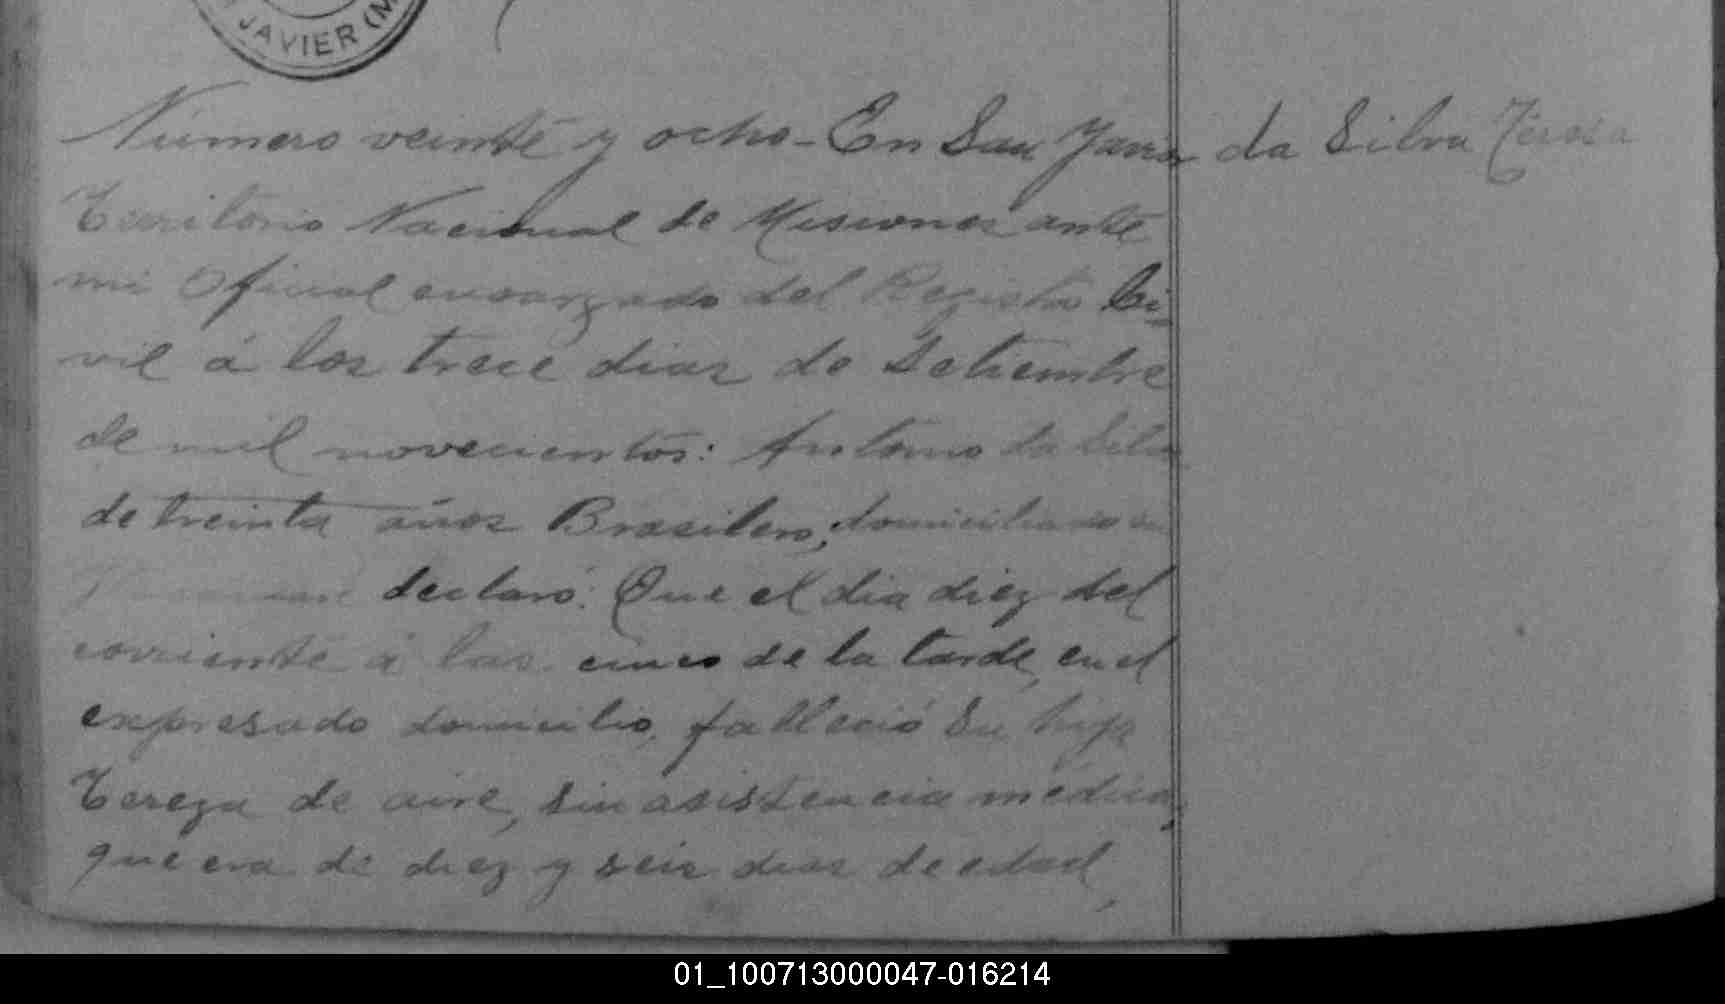 JAVIER (M
Número veinte y ocho - En San Javier
da Silva Teresa
Territorio Nacional de Misiones ante
mi Oficial encargado del Registro Ci-
vil á los trece dias de Setiembre
de mil novecientos: Antonio da Silva
de treinta años Brasilero, domiciliado en
declaró: Que el dia diez del
corriente á las cinco de la tarde, en el
expresado domicilio, falleció su hija
Tereza de aire, sin asistencia médica,
que era de diez y seis dias de edad,
01_100713000047-016214